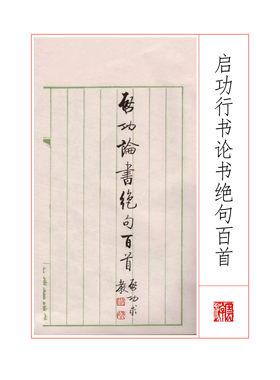 启功行书论书绝句百首
啟功論書絕句百首
啟功求
教